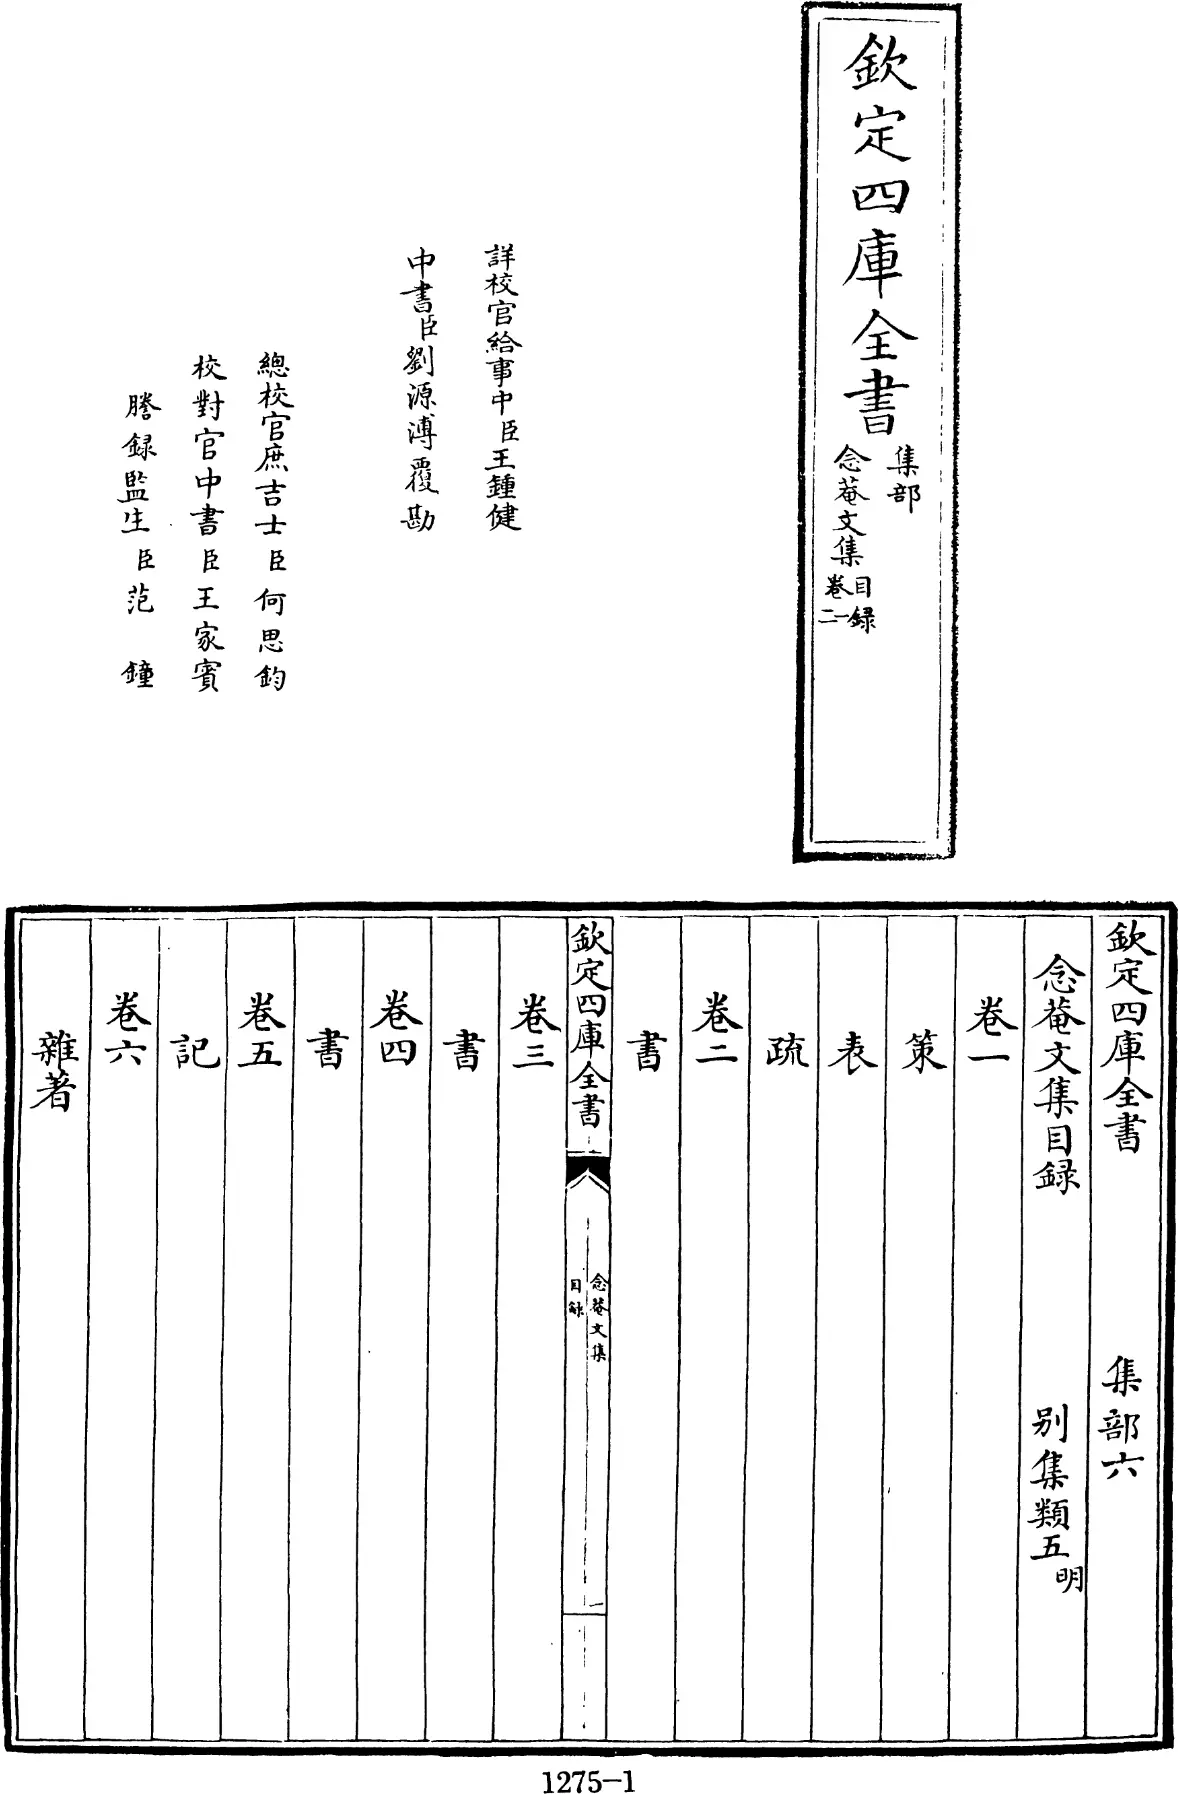 欽定四庫全書
集部
念菴文集
目録
卷一
二
詳校官給事中臣王鍾健
中書臣劉源溥覆勘
總校官庶吉士臣何思鈞
校對官中書臣王家賓
謄録監生臣范鐘
欽定四庫全書 集部六
念菴文集目録 别集類五明
卷一
策
表
疏
卷二
書
欽定四庫全書
念菴文集
目録
一
卷三
書
卷四
書
卷五
記
卷六
雜著
1275-1